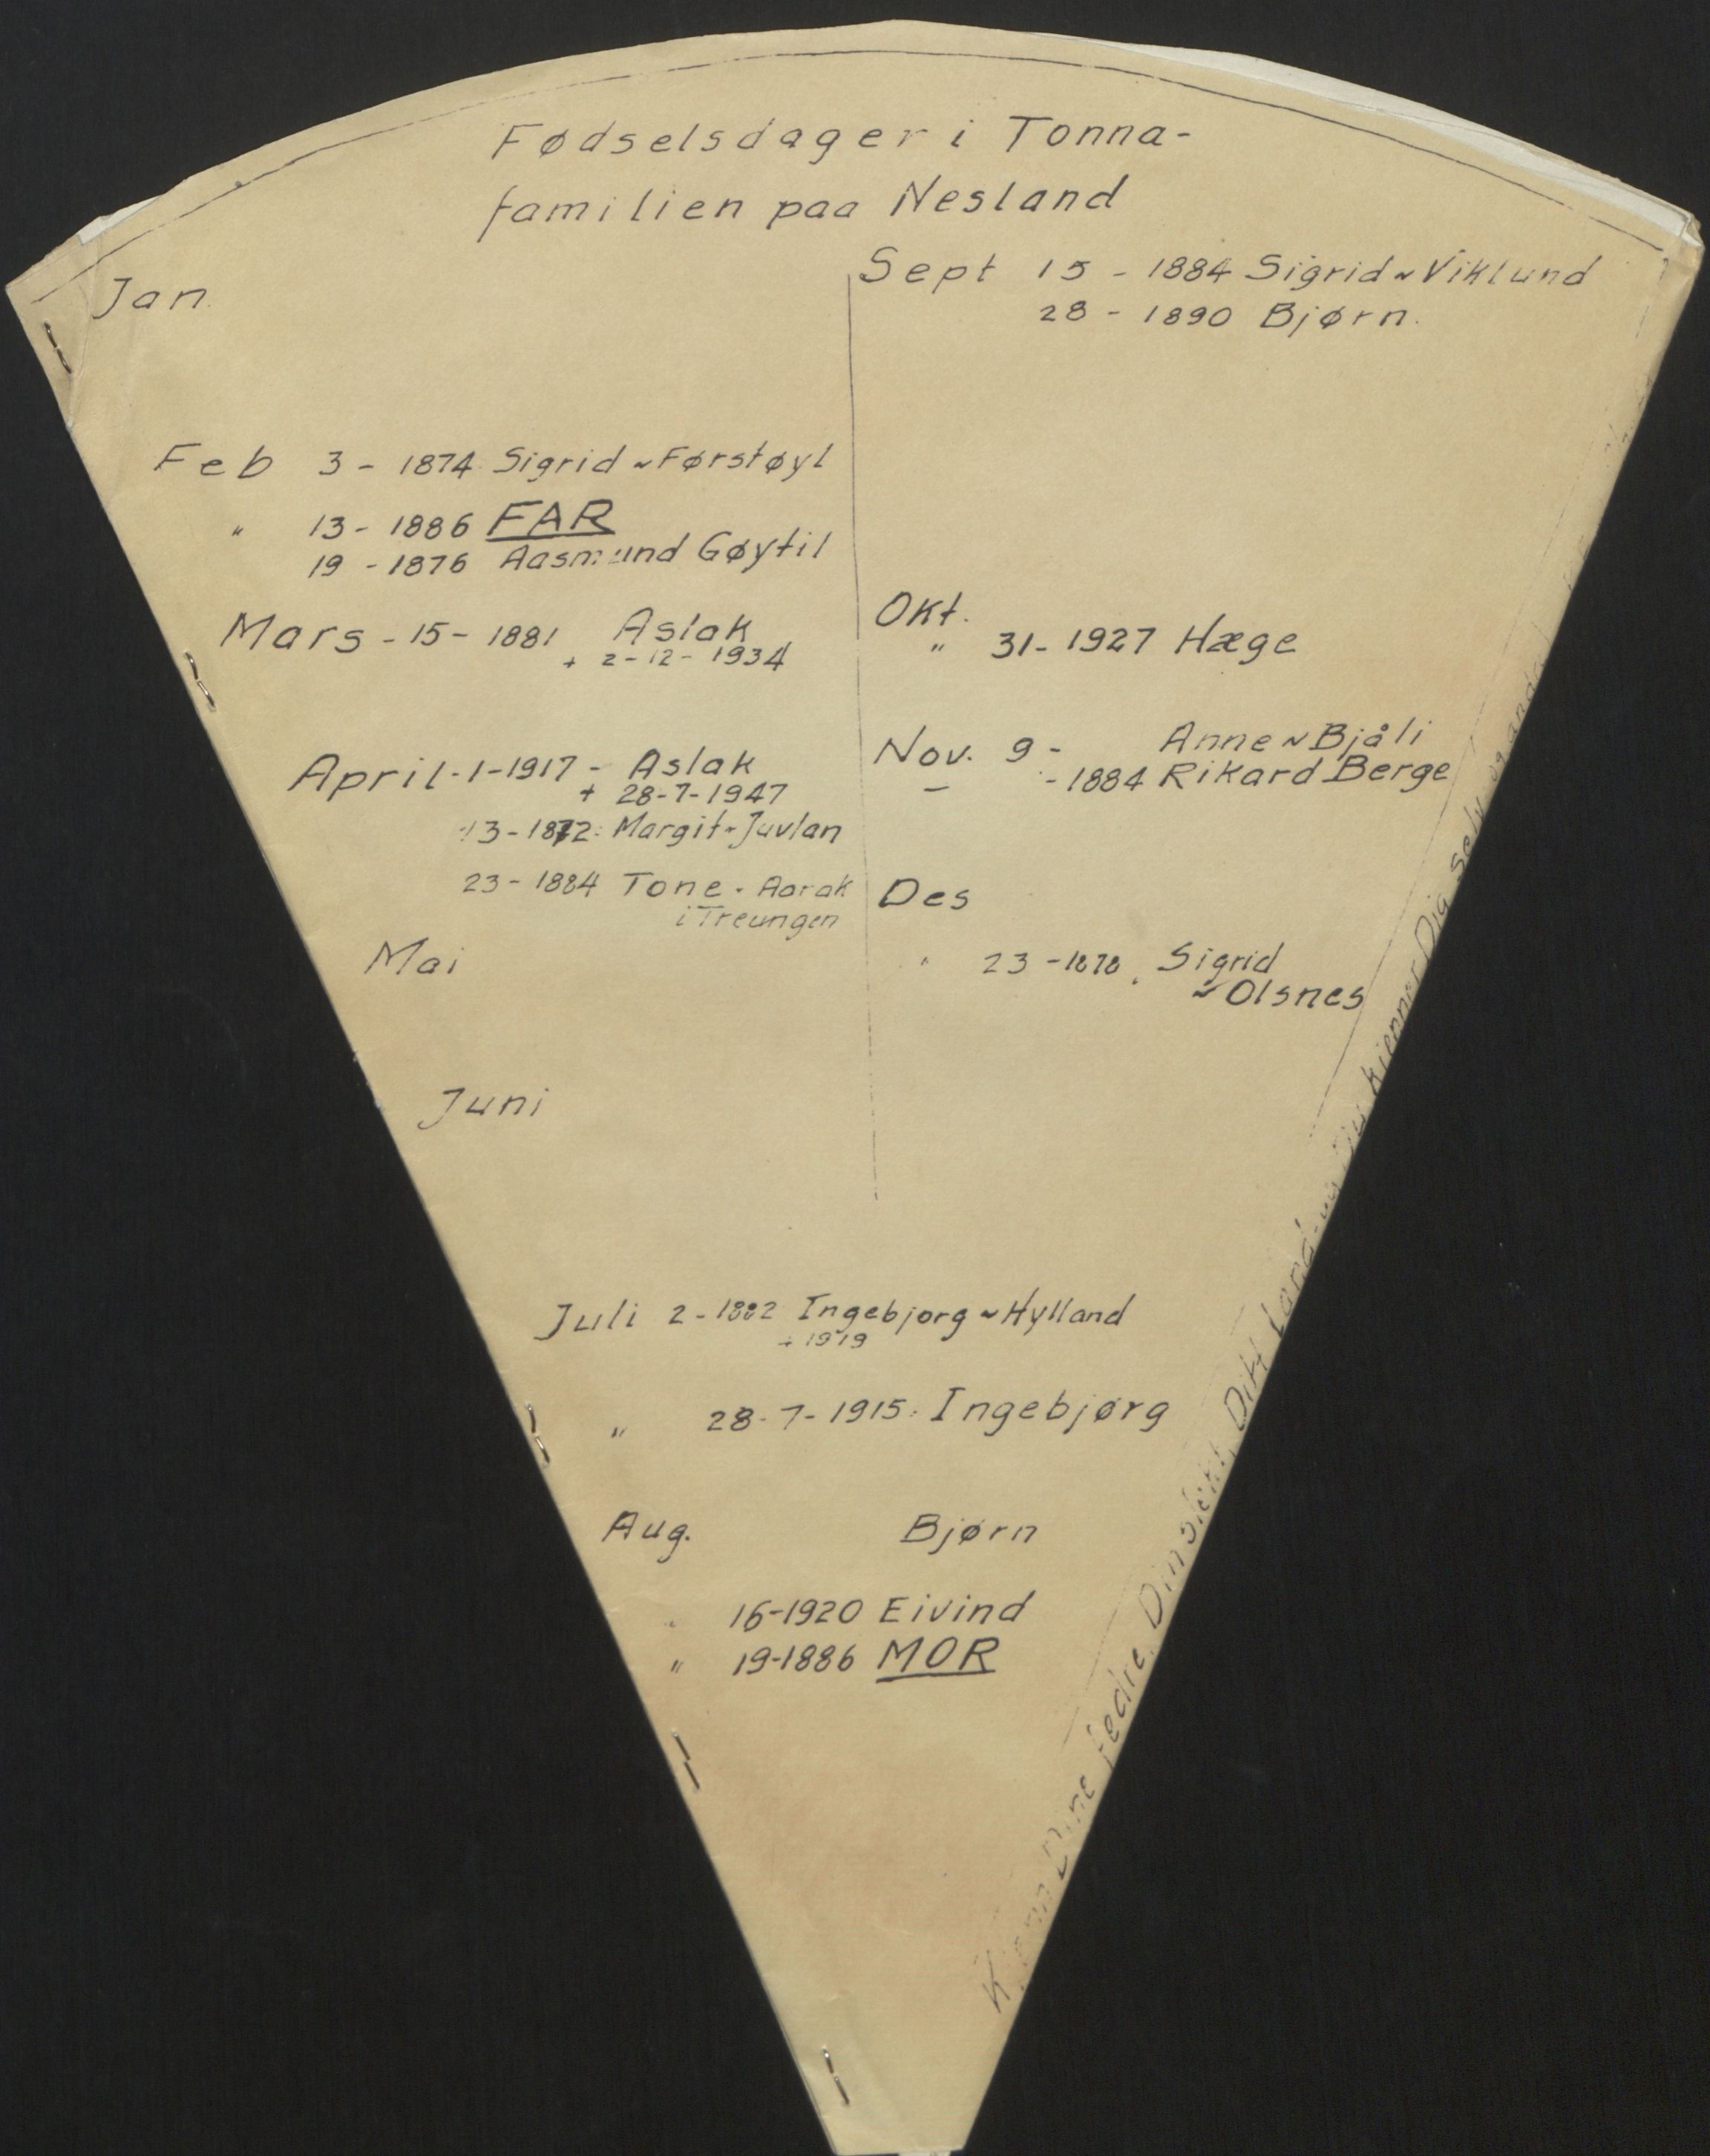 Fødselsdager i Tonna-
familien paa Nesland
Jan.
Feb 3 - 1874 Sigrid ~ Førstøyl
" 13 - 1886 FAR
19 - 1876 Aasmund Gøytil
Mars - 15 - 1881 Aslak
+ 2-12-1934
April - 1-1917 - Aslak
+ 28-7-1947
13-1872: Margit - Juvlan
23-1884 Tone - Aarak
i Treungen
Mai
Juni
Juli 2-1882 Ingebjorg ~ Hylland
+ 1919
" 28-7-1915: Ingebjørg
Aug. Bjørn
" 16-1920 Eivind
" 19-1886 MOR
Sept 15 - 1884 Sigrid ~ Viklund
28 - 1890 Bjørn.
Okt.
" 31-1927 Hæge
Nov. 9 - Anne ~ Bjåli
- - 1884 Rikard Berge
Des
" 23 - 1878. Sigrid
~ Olsnes
Dine fedre, Din Ditt land - og kjenner Dig Selv og andre